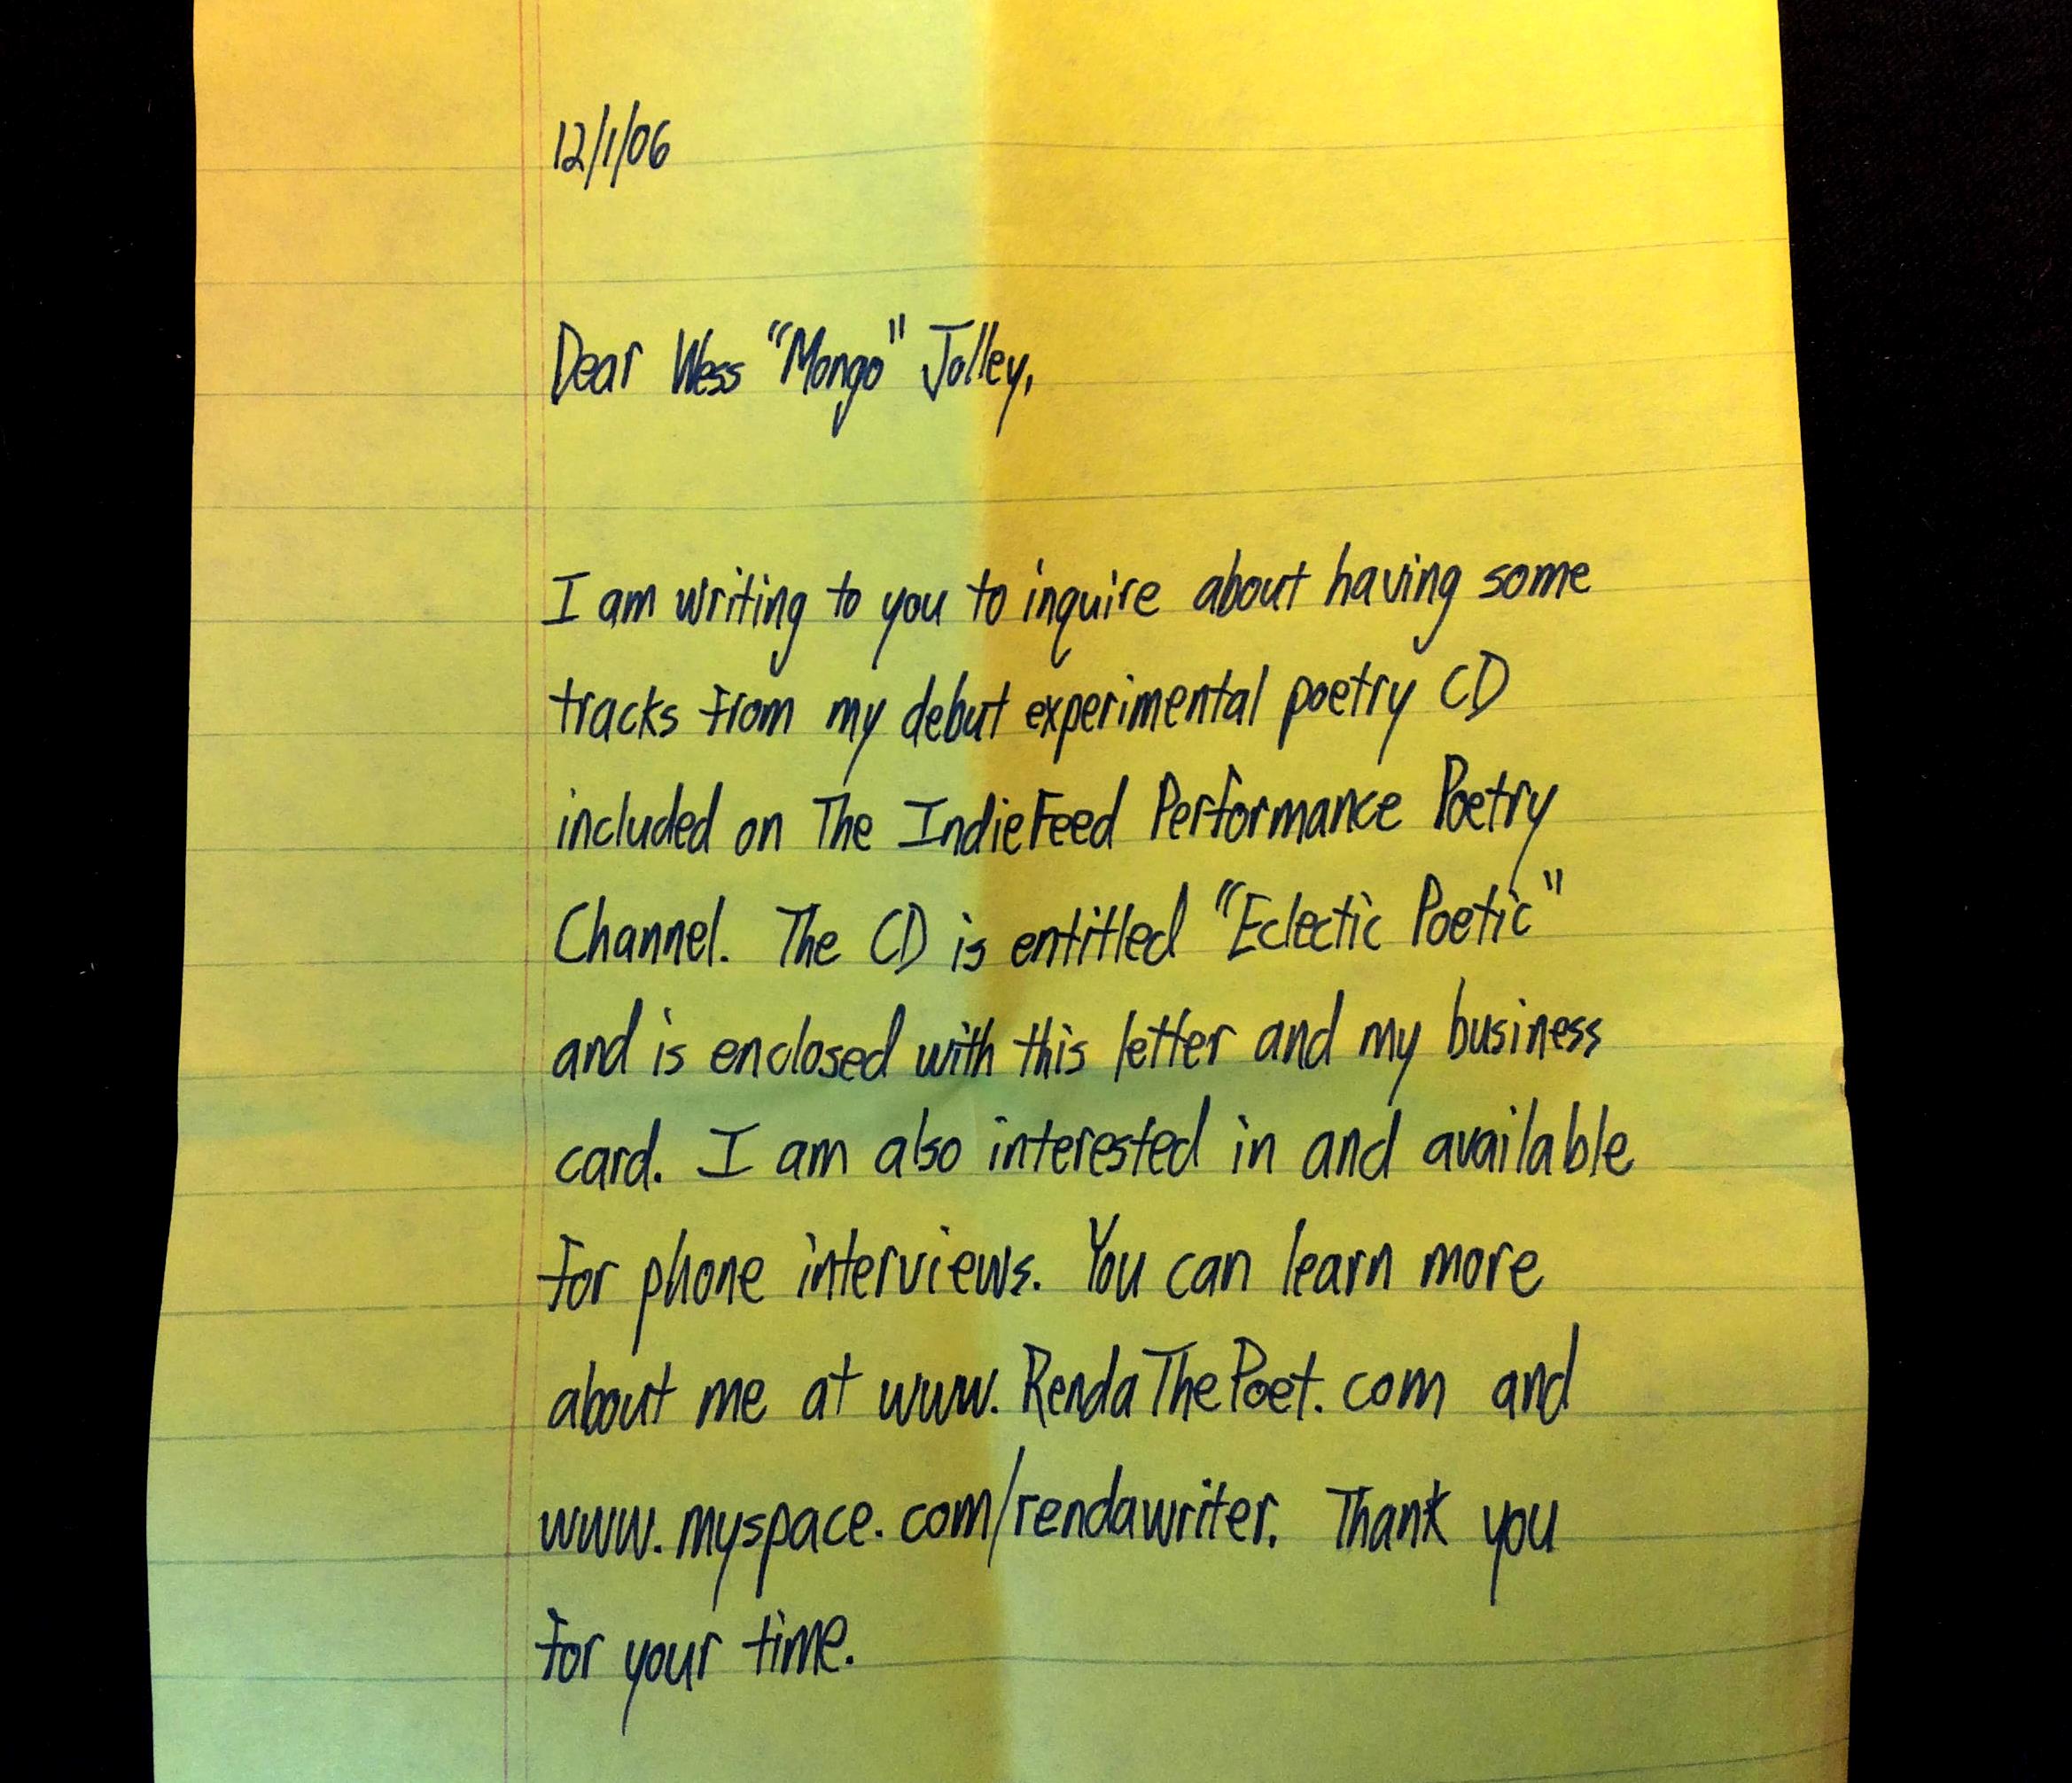 12/1/06
Dear Wess "Mongo" Jolley,
I am writing to you to inquire about having some
tracks from my debut experimental poetry CD
included on The IndieFeed Performance Poetry
Channel. The CD is entitled "Eclectic Poetic"
and is enclosed with this letter and my business
card. I am also interested in and available
for phone interviews. You can learn more
about me at www.RendaThePoet.com and
www.myspace.com/rendawriter. Thank you
for your time.